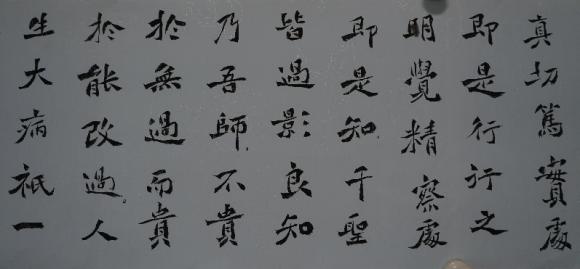 真切篤實處
即是行行之
明覺精察處
即是知千聖
皆過影良知
乃吾師不貴
於無過而貴
於能改過人
生大病祇一